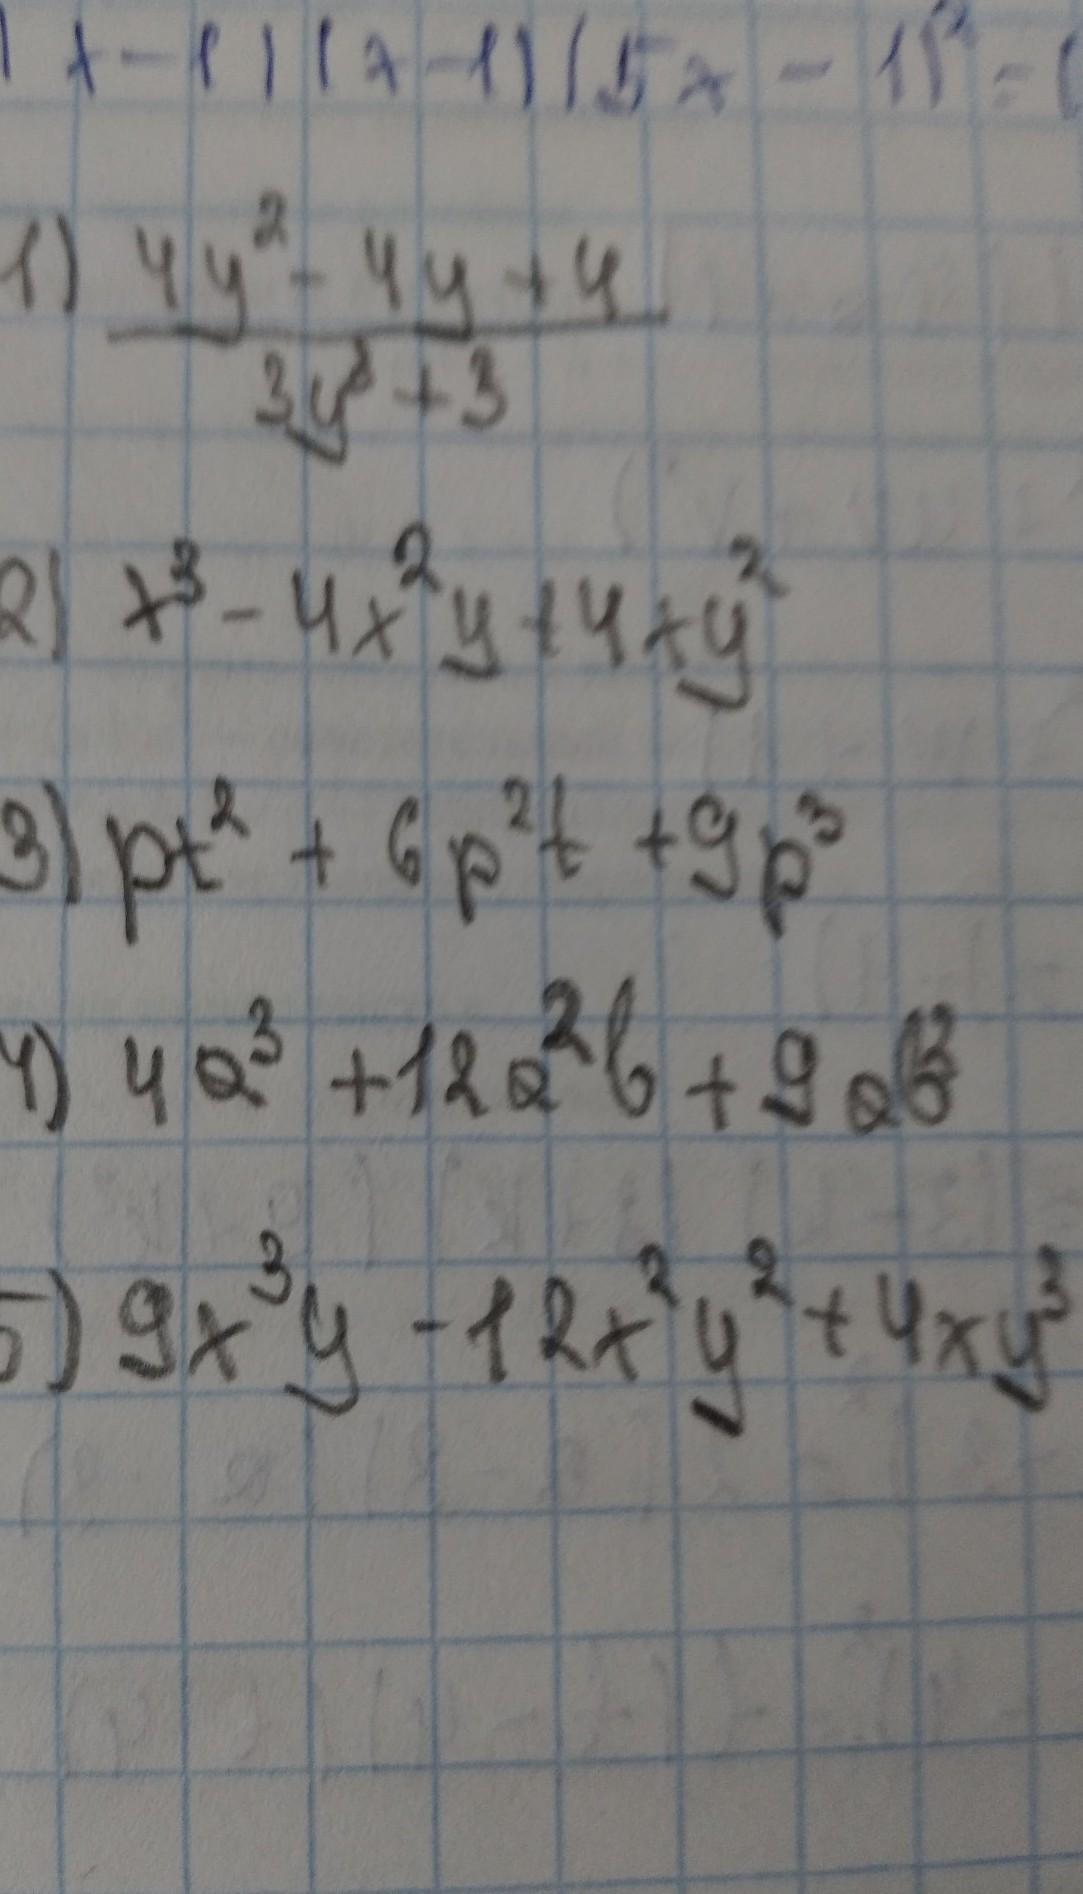 x-1)(x-1)(5x-1)²=0
1) 4y² - 4y + 4
3y³ + 3
2) x³ - 4x²y + 4xy²
3) pt² + 6p²t + 9p³
4) 4a³ + 12a²b + 9ab²
5) 9x³y - 12x²y² + 4xy³